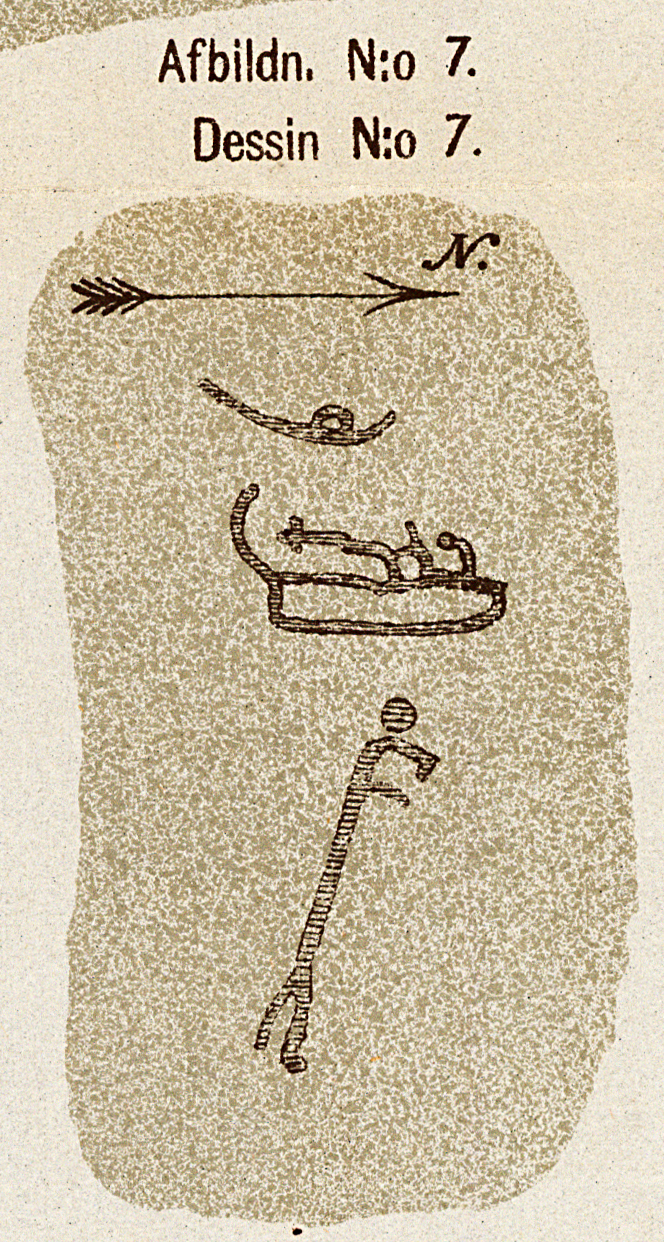 Afbildn. N:o 7.
Dessin N:o 7.
N.